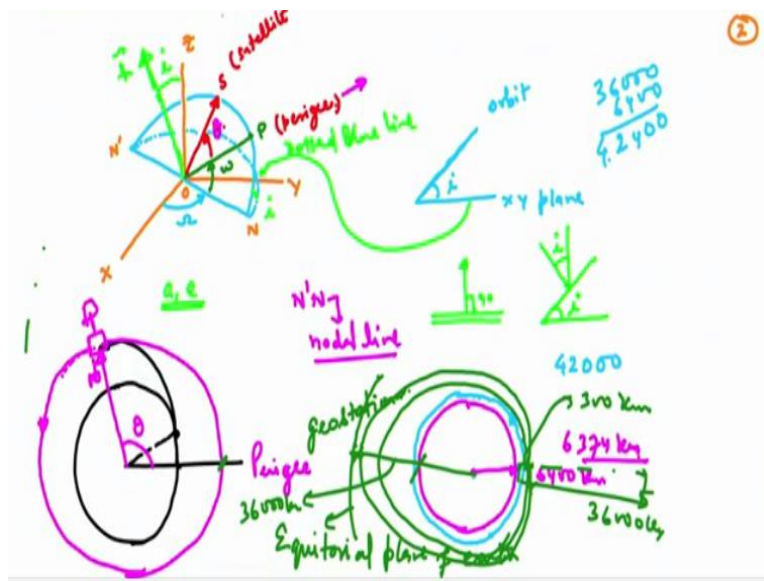 2
z
i
S (satellite
N'
θ
P (perigee)
dotted blue line
ω
O
Y
Ω
N
i
X
orbit
i
xy plane
36000
6400
42400
a, e
N'N→
nodal line
90
i
i
θ
Perigee
42000
300 km
geostation
6374 km
6400 km
36000 km
36000 km
Equitorial plane of earth